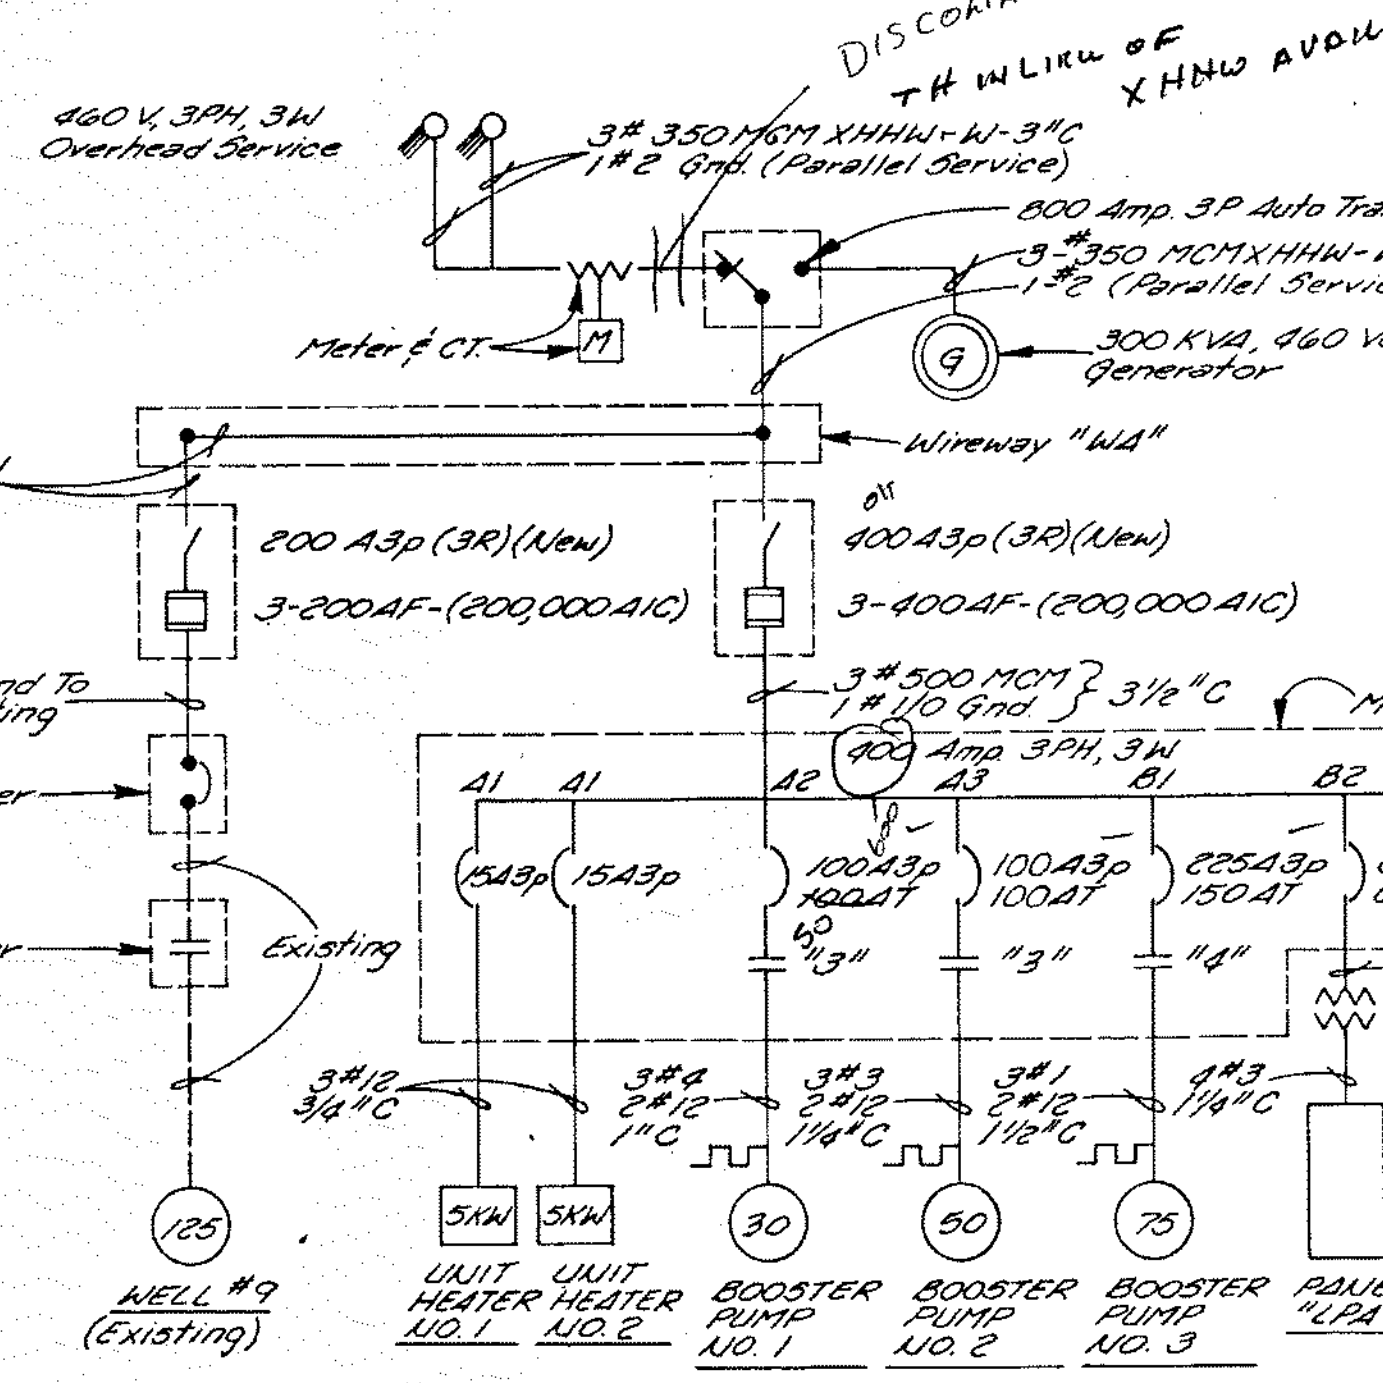 DISCON
TH IN LIEU OF
XHHW AVAIL
460 V, 3PH, 3W
Overhead Service
3# 350 MCM XHHW-W-3"C
1#2 Gnd. (Parallel Service)
800 Amp. 3P Auto Tra
3-#350 MCM XHHW-W
1-#2 (Parallel Servic
Meter & CT.
M
G
300 KVA, 460 Vo
Generator
Wireway "WA"
200 A3p (3R)(New)
400 A3p (3R)(New)
3-200AF-(200,000 AIC)
3-400AF-(200,000 AIC)
nd To
ting
3 # 500 MCM
1 # 1/0 Gnd.
3 1/2 "C
M
400 Amp. 3PH, 3W
600
A1
A1
A2
A3
B1
B2
er
15A3p
15A3p
100A3p
100AT
50
100A3p
100AT
225A3p
150AT
r
Existing
"3"
"3"
"4"
3#12
3/4"C
3#4
2#12
1"C
3#3
2#12
1 1/4"C
3#1
2#12
1 1/2"C
4#3
1 1/4"C
125
5KW
5KW
30
50
75
WELL #9
(Existing)
UNIT
HEATER
NO. 1
UNIT
HEATER
NO. 2
BOOSTER
PUMP
NO. 1
BOOSTER
PUMP
NO. 2
BOOSTER
PUMP
NO. 3
PANE
"LPA